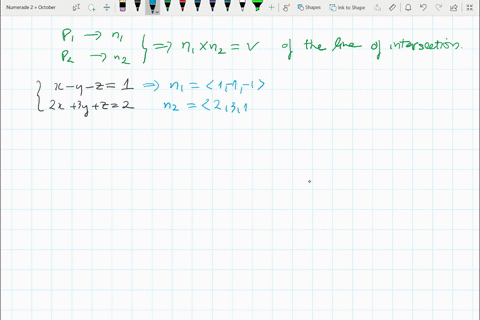 Numerade 2 » October
Shapes
Ink to Shape
P₁ → n₁
P₂ → n₂ } ⟹ n₁ × n₂ = v of the line of intersection.
{ x-y-z = 1 ⟹ n₁ = <1,-1,-1>
2x+3y+z=2 n₂ = <2,3,1